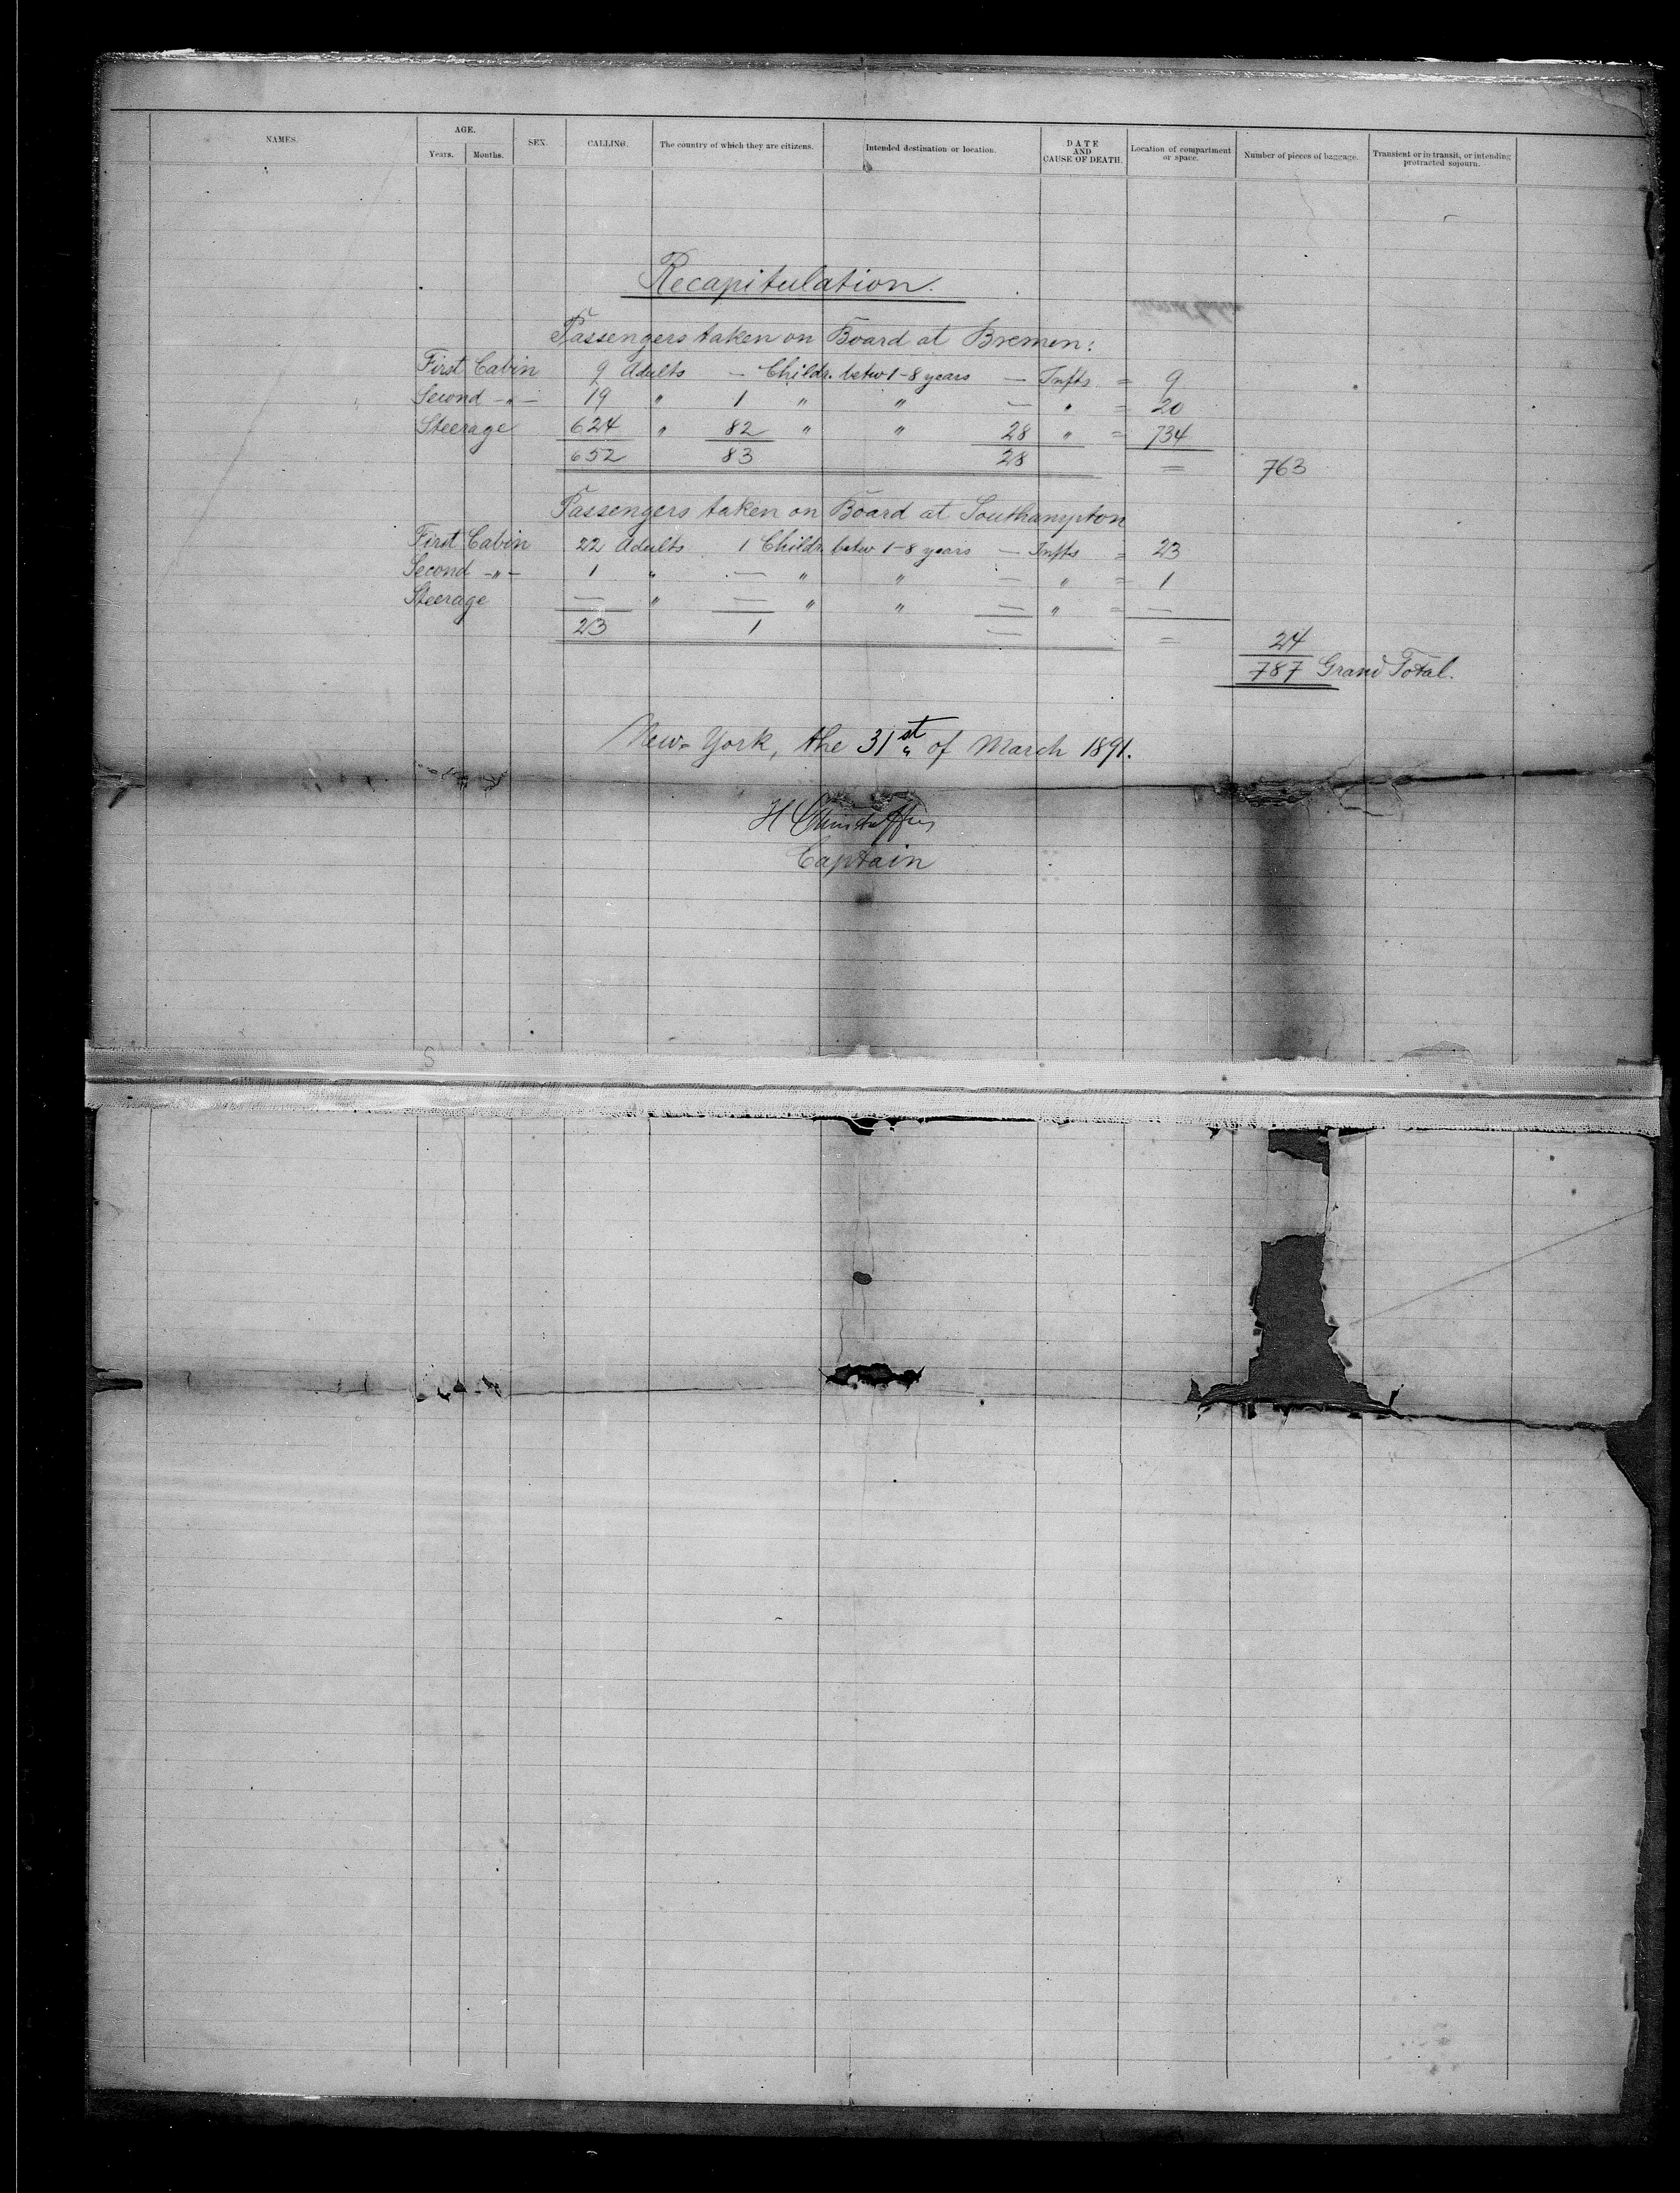 NAMES. AGE. SEX. CALLING. The country of which they are citizens. Intended destination or location. DATE AND CAUSE OF DEATH. Location of compartment or space. Number of pieces of baggage. Transient or in transit, or intending protracted sojourn.
Years. Months.
Recapitulation.
Passengers taken on Board at Bremen:
First Cabin 9 Adults — Childr. betw 1-8 years — Infts = 9
Second -"- 19 " 1 " " — " = 20
Steerage 624 " 82 " " 28 " = 734
652 83 28 = 763
Passengers taken on Board at Southampton
First Cabin 22 Adults 1 Childr. betw 1-8 years — Infts = 23
Second -"- 1 " — " " — " = 1
Steerage — " — " " — " = —
23 1 — = 24
787 Grand Total.
New-York, the 31st of March 1891.
H
Captain
S